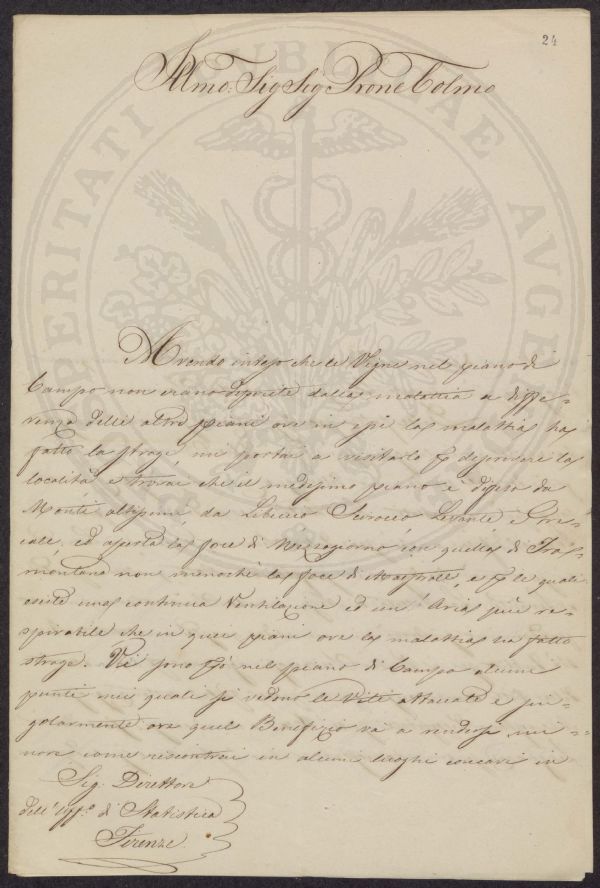 24
Illmo: Sig Sig Prone Colmo
Avendo inteso che le Vigne nel piano di
Campo non erano deperite dalla malattia a diffe-
renza delli altri piani ove in essi la malattia ha
fatto la strage, mi portai a visitarlo p descrivere la
località e trovai che il medesimo piano è difeso da
Monti altissimi da Libeccio Scirocco Levante e Gre-
cale, ed aperta la foce di Mezzogiorno, con quella di Tra-
montana non menoché la foce di Maestrale, e p le quali
esiste una continua Ventilazione ed un' Aria più re-
spirabile che in quei piani ove la malattia ha fatto
strage. Vi sono p nel piano di Campo alcuni
punti nei quali si vedono le Vite attaccate e sin-
golarmente ove quel Benefizio va a rendersi mi-
nore come riscontrai in alcuni luoghi concavi in
Sig. Direttore
dell' Uff.o di Statistica
Firenze
PROSPERITATI PUBLICAE AVGENDAE